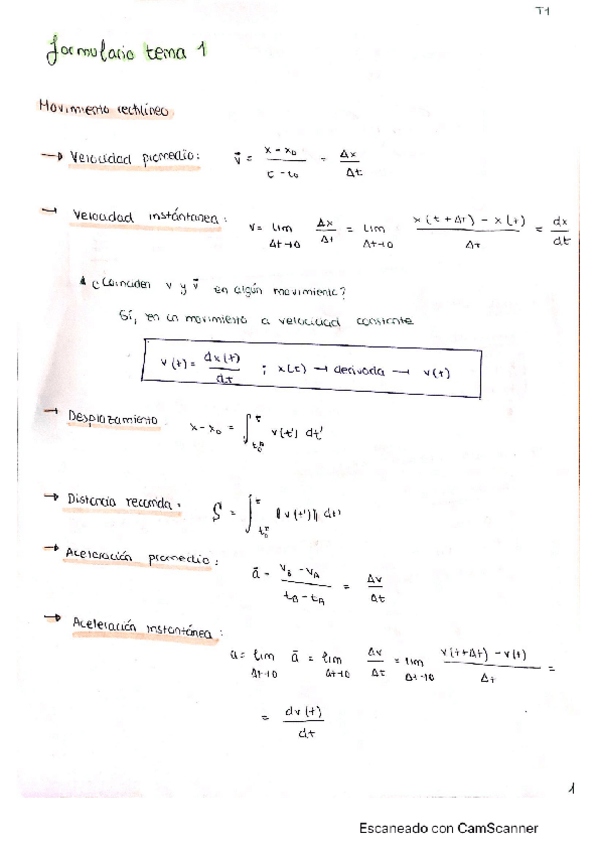 T1
formulario tema 1
Movimiento rectilíneo
→ Velocidad promedio: v̄ = (x - x₀)/(t - t₀) = Δx/Δt
→ Velocidad instántanea: v = lim Δt→0 Δx/Δt = lim Δt→0 (x(t+Δt) - x(t))/Δt = dx/dt
¿Coinciden v y v̄ en algún movimiento?
Sí, en un movimiento a velocidad constante
v(t) = dx(t)/dt ; x(t) → derivada → v(t)
→ Desplazamiento x - x₀ = ∫ₜ₀ᵗ v(t') dt'
→ Distancia recorrida: S = ∫ₜ₀ᵗ ‖v(t')‖ dt'
→ Aceleración promedio: ā = (v_B - v_A)/(t_B - t_A) = Δv/Δt
→ Aceleración instantánea:
a = lim Δt→0 ā = lim Δt→0 Δv/Δt = lim Δt→0 (v(t+Δt) - v(t))/Δt =
= dv(t)/dt
1
Escaneado con CamScanner